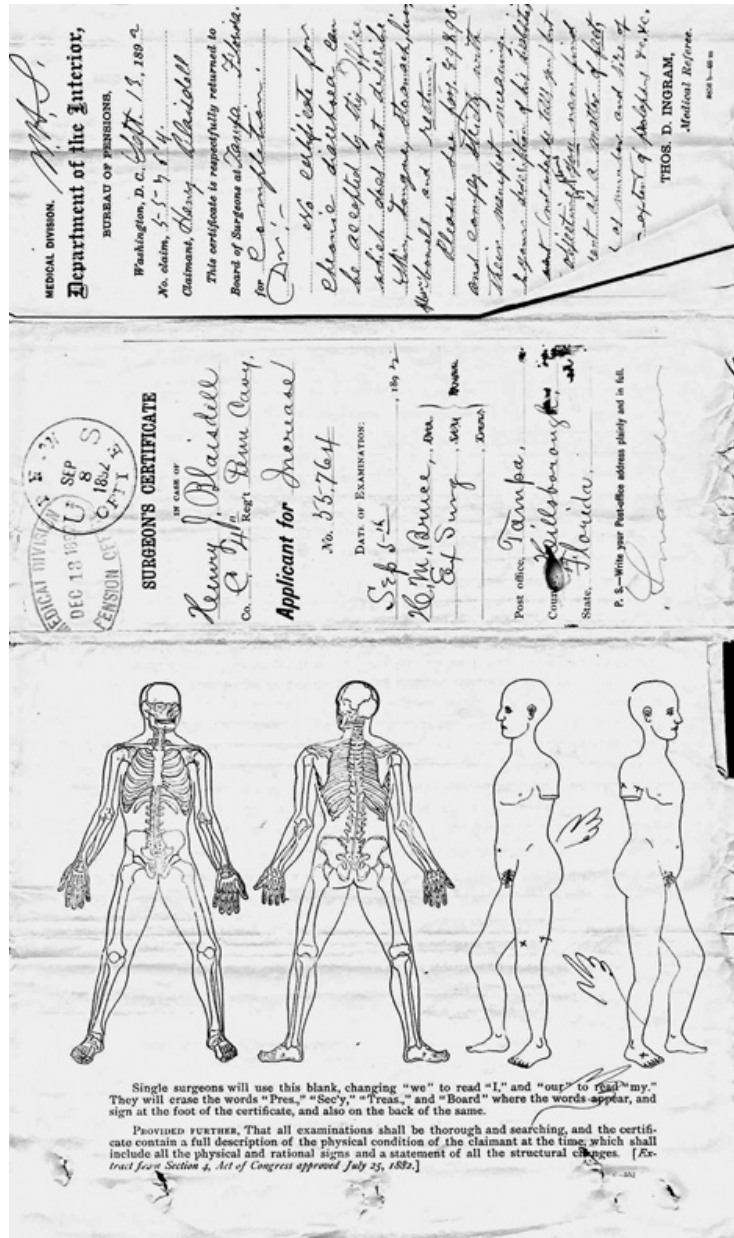 MEDICAL DIVISION.
Department of the Interior,
BUREAU OF PENSIONS,
Washington, D.C., Sept. 13, 1892
No. claim, 55764
Claimant, Henry Blaisdell
This certificate is respectfully returned to
Board of Surgeons at Tampa Florida.
for Completion.
Dr:-
No certificate for
chronic diarrhoea can
be accepted by this Office
which does not describe
skin, tongue, stomach, liver
bowels and rectum.
Please see par.
and comply strictly with
their manifest meaning
THOS. D. INGRAM,
Medical Referee.
MEDICAL DIVISION
DEC 13
PENSION OFFICE
SEP
8
1892
SURGEON'S CERTIFICATE
IN CASE OF
Henry J Blaisdell
Co. C 4th Reg't Penn Cavy.
Applicant for Increase
No. 55.764
DATE OF EXAMINATION:
Sep 5th, 1892
H. M. Bruce,
Ex Surg,
Post office, Tampa,
County, Hillsborough,
State, Florida.
P. S.—Write your Post-office address plainly and in full.
Single surgeons will use this blank, changing "we" to read "I," and "our" to read "my."
They will erase the words "Pres.," "Sec'y," "Treas.," and "Board" where the words appear, and
sign at the foot of the certificate, and also on the back of the same.
PROVIDED FURTHER, That all examinations shall be thorough and searching, and the certifi-
cate contain a full description of the physical condition of the claimant at the time, which shall
include all the physical and rational signs and a statement of all the structural changes. [Ex-
tract from Section 4, Act of Congress approved July 25, 1882.]